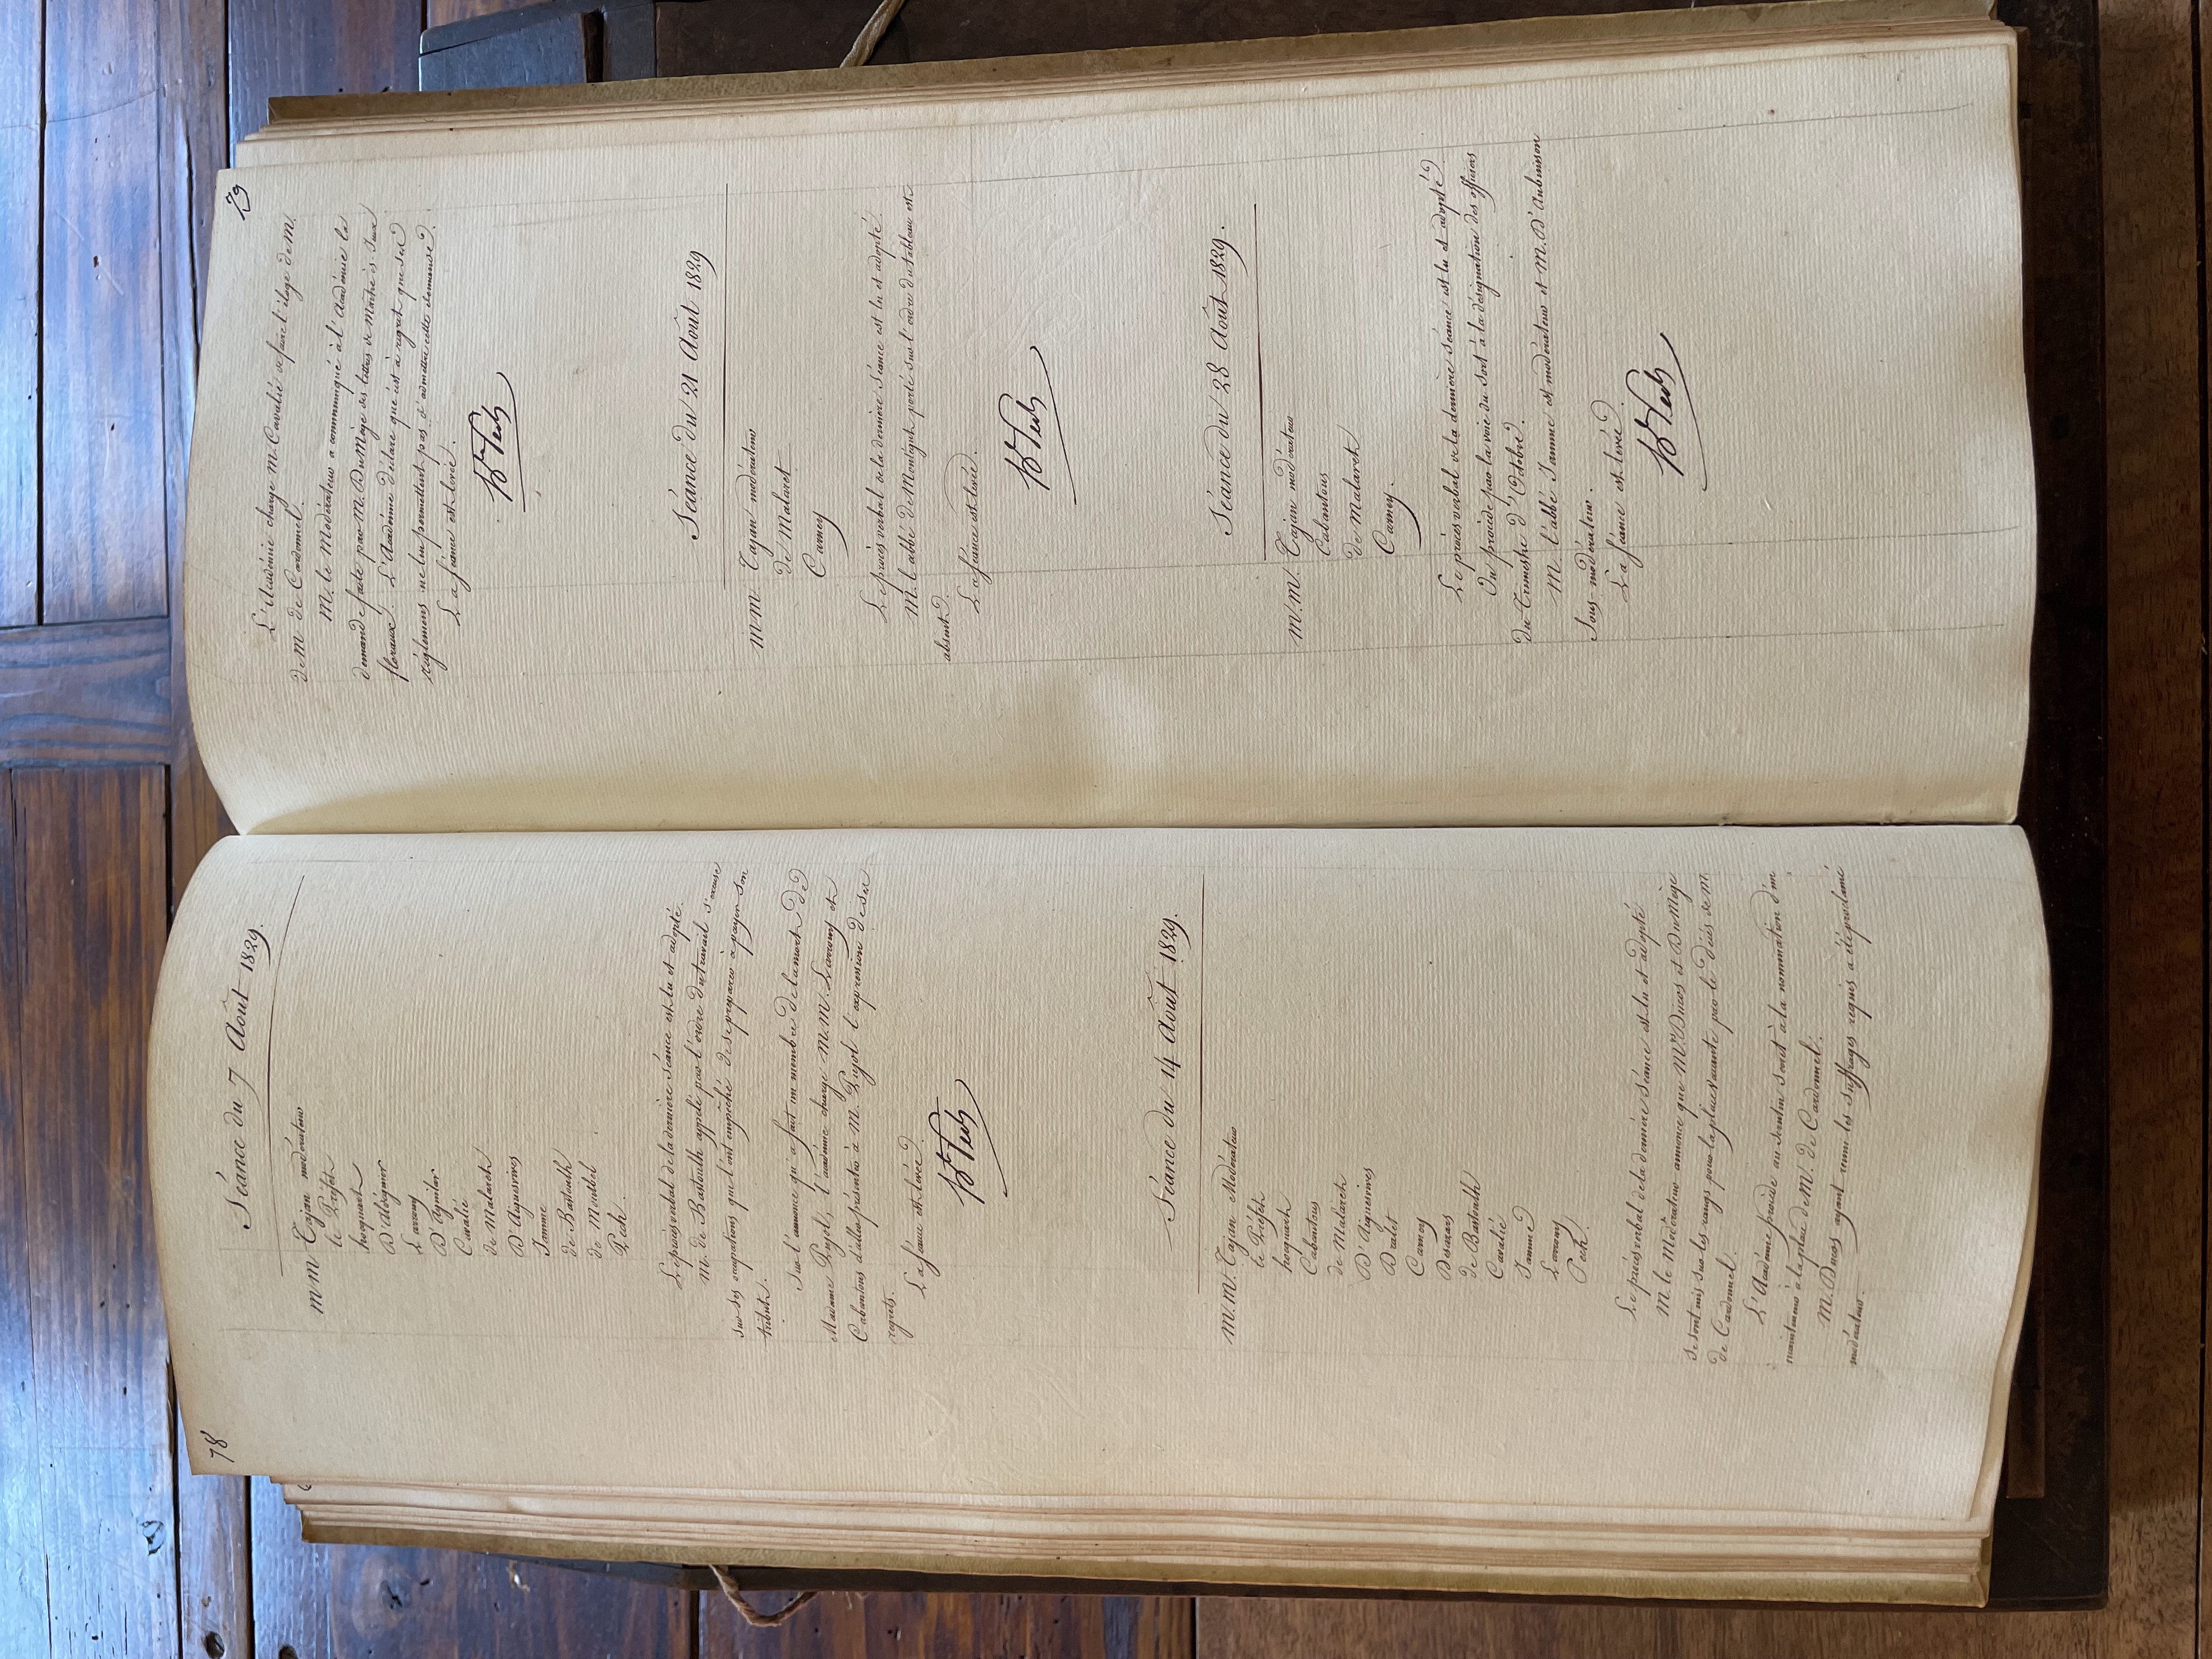 78
Séance du 7 Août 1829.
MM Tajan modérateur
le Préfet
hocquart
D'Aldéguier
Larrouy
D'Aguilar
Cavalié
de Malaret
D'Aiguesvives
Jamme
de Bastoulh
de Montbel
Pech.
Le procès verbal de la dernière séance est lu et adopté.
M. de Bastoulh appelé par l'ordre du travail s'excuse
sur ses occupations qui l'ont empêché de se préparer à payer son
tribut.
Sur l'annonce qu'a fait un membre de la mort de
Madame Pujol, l'académie charge M.M. Larrouy et
Cabantous d'aller présenter à M. Pujol l'expression de ses
regrets.
La séance est levée.
Bn Pech
Séance du 14 Août 1829.
M.M. Tajan Modérateur
le Préfet
hocquart
Cabantous
de Malaret
D'Aiguesvives
Dralet
Carney
Desazars
de Bastoulh
Cavalié
Jamme
Larrouy
Pech.
Le procès verbal de la dernière séance est lu et adopté
M. le Modérateur annonce que MM. Ducos et DuMège
se sont mis sur les rangs pour la place vacante par le décès de M.
de Cardonnel.
L'Académie procède au scrutin secret à la nomination d'un
mainteneur à la place de M. de Cardonnel.
M. Ducos ayant réuni les suffrages requis a été proclamé
modérateur.
79
L'Académie charge M. Cavalié de faire l'éloge de M.
de M de Cardonnel.
M. le Modérateur a communiqué à l'Académie la
demande faite par M. DuMège des lettres de maître ès-Jeux
floraux. L'Académie déclare que c'est à regret que ses
réglemens ne lui permettent pas d'admettre cette demande.
La séance est levée.
Bn Pech
Séance du 21 Août 1829
MM. Tajan modérateur
de Malaret
Carney
Le procès verbal de la dernière séance est lu et adopté.
M. l'abbé de Montégut porté sur l'ordre du tableau est
absent.
La séance est levée.
Bn Pech
Séance du 28 Août 1829.
M.M. Tajan modérateur
Cabantous
de Malaret
Carney.
Le procès verbal de la dernière séance est lu et adopté.
On procède par la voie du sort à la désignation des officiers
du Trimestre d'Octobre.
M. l'abbé Jamme est modérateur et M. D'Aubuisson
Sous-modérateur.
La séance est levée.
Bn Pech